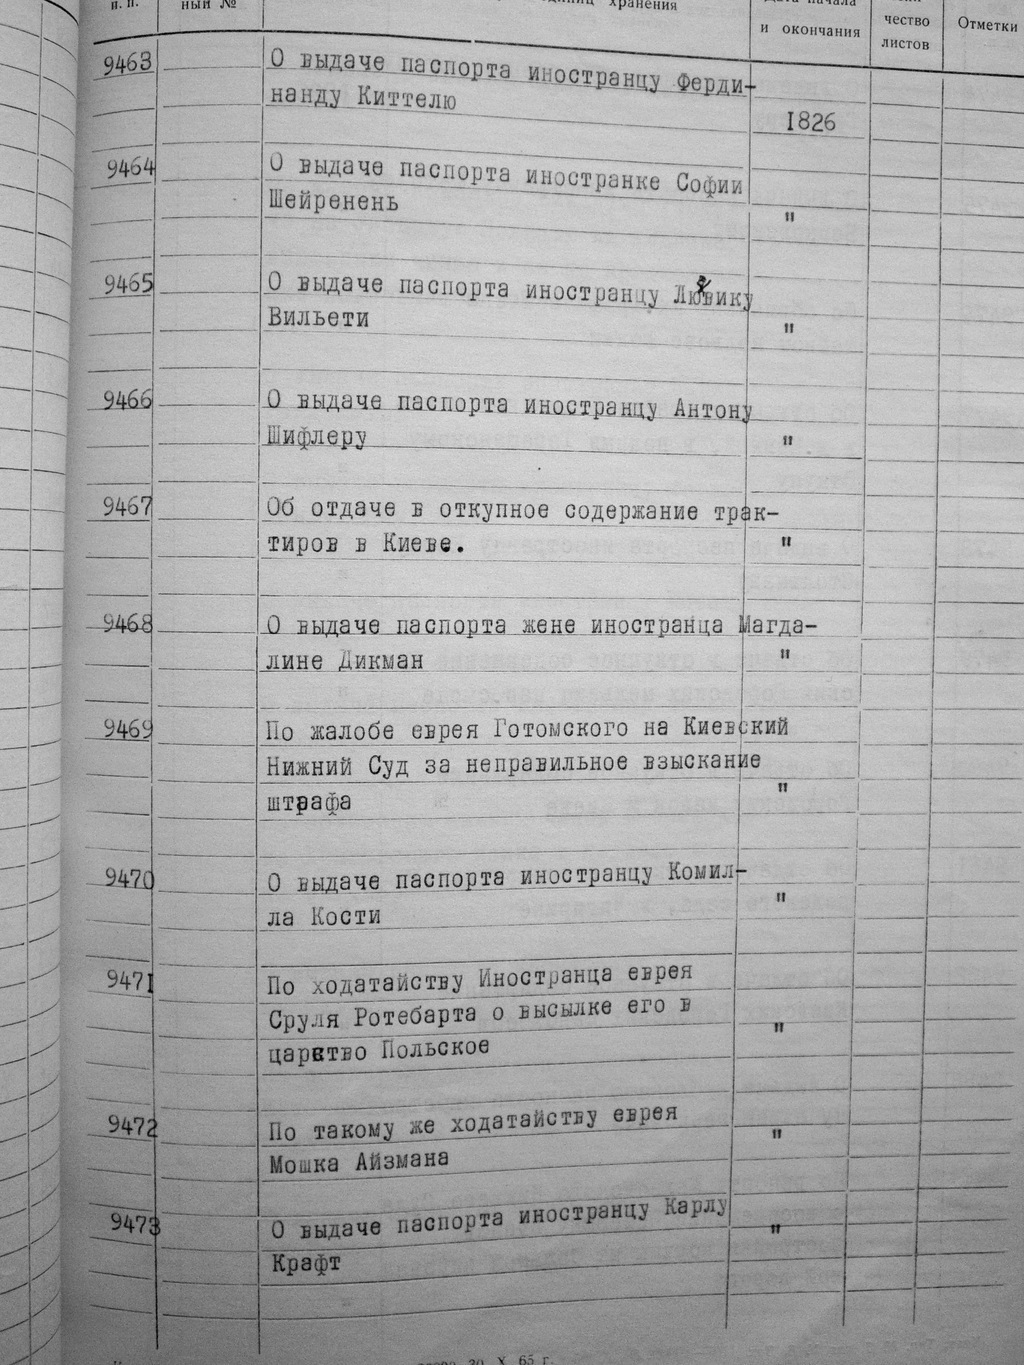 п. п.
ный №
единиц хранения
Дата начала
и окончания
чество
листов
Отметки
9463 О выдаче паспорта иностранцу Ферди-
нанду Киттелю
1826
9464 О выдаче паспорта иностранке Софии
Шейренень "
9465 О выдаче паспорта иностранцу Людвику
Вильети "
9466 О выдаче паспорта иностранцу Антону
Шифлеру "
9467 Об отдаче в откупное содержание трак-
тиров в Киеве. "
9468 О выдаче паспорта жене иностранца Магда-
лине Дикман "
9469 По жалобе еврея Готомского на Киевский
Нижний Суд за неправильное взыскание
штрафа "
9470 О выдаче паспорта иностранцу Комил-
ла Кости "
9471 По ходатайству Иностранца еврея
Сруля Ротебарта о высылке его в
царство Польское "
9472 По такому же ходатайству еврея
Мошка Айзмана "
9473 О выдаче паспорта иностранцу Карлу
Крафт "
30 X 65 г.